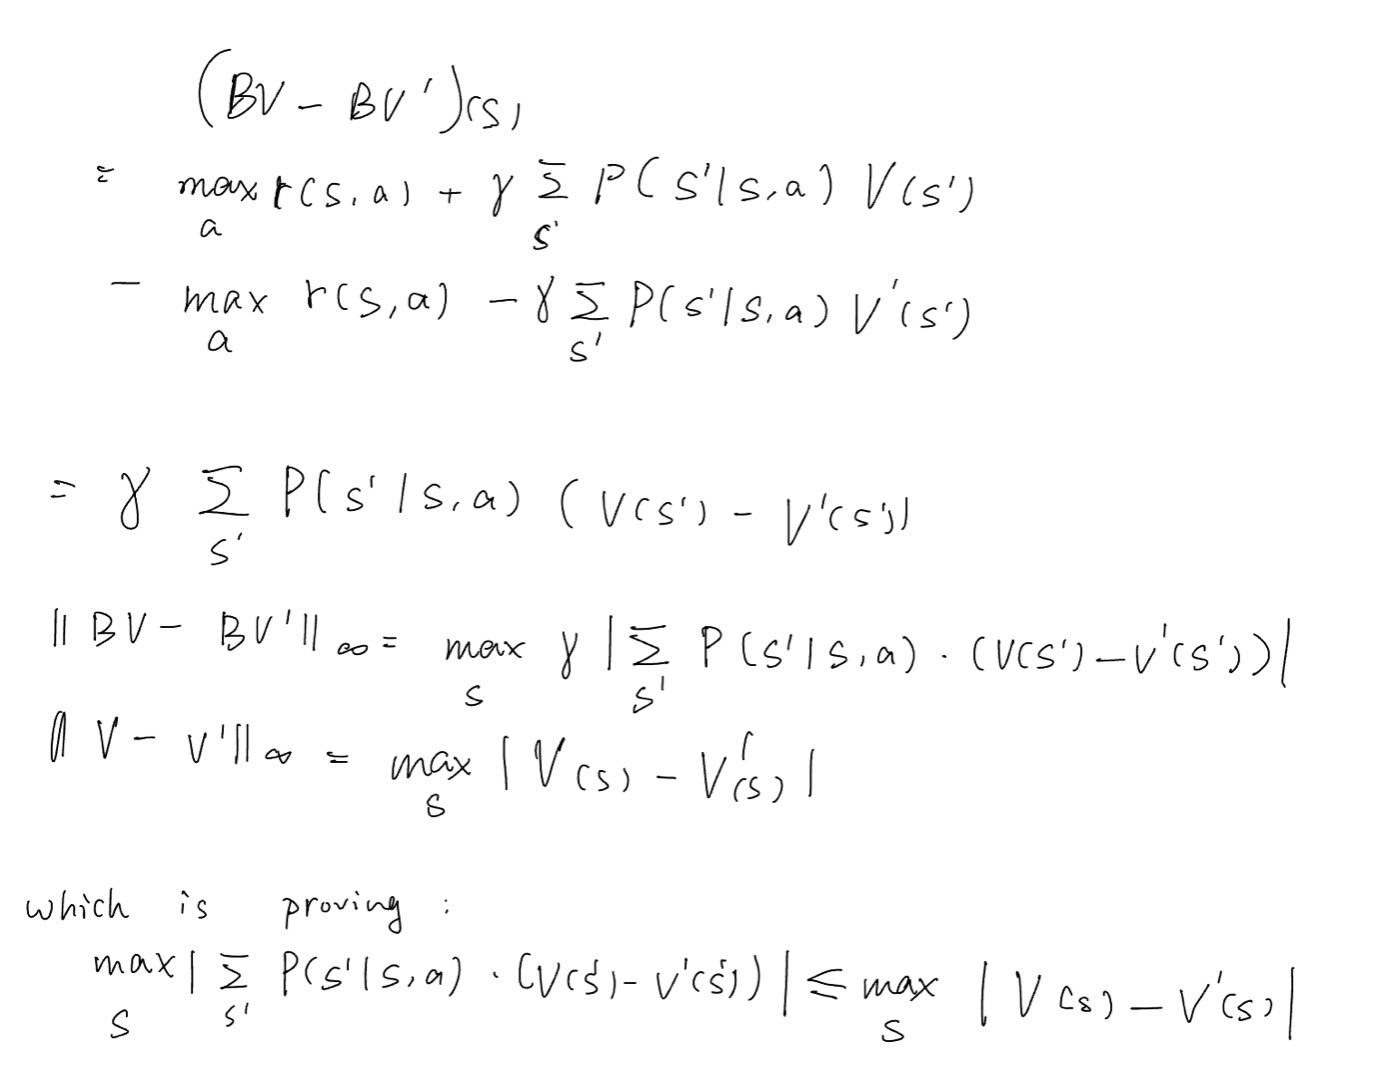 (BV - BV')(s)
= max_a r(s,a) + γ Σ_s' P(s'|s,a) V(s')
- max_a r(s,a) - γ Σ_s' P(s'|s,a) V'(s')
= γ Σ_s' P(s'|s,a) (V(s') - V'(s'))
||BV - BV'||∞ = max_s γ |Σ_s' P(s'|s,a) · (V(s') - V'(s'))|
||V - V'||∞ = max_s |V(s) - V'(s)|
which is proving :
max_s |Σ_s' P(s'|s,a) · (V(s') - V'(s'))| ≤ max_s |V(s) - V'(s)|